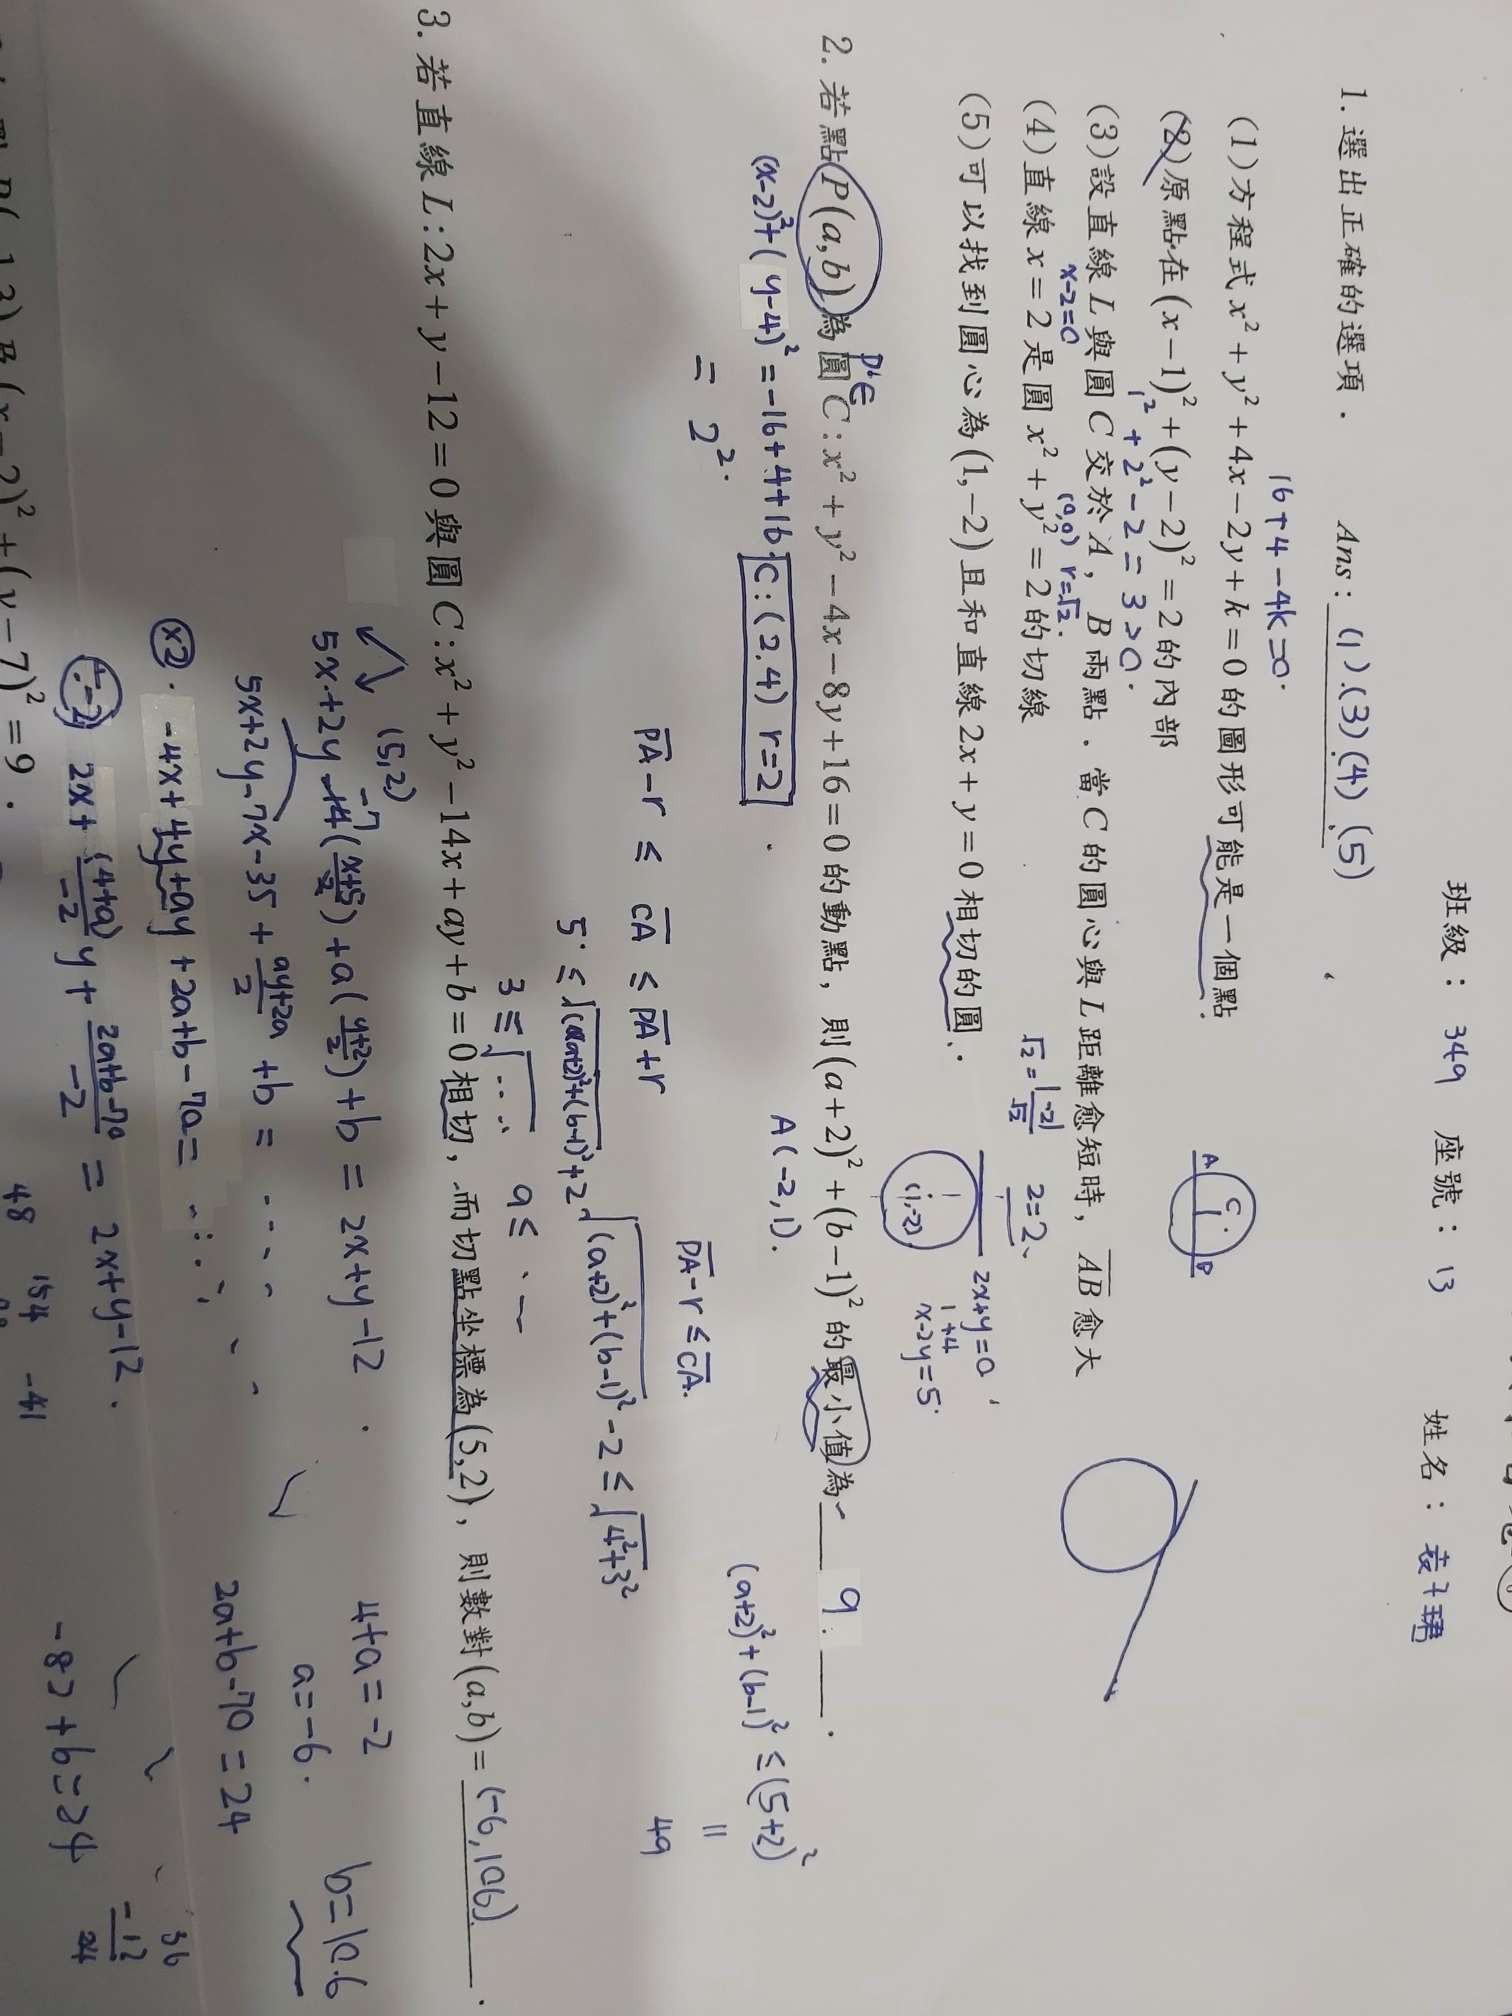 班級：349 座號：13 姓名：
1. 選出正確的選項． Ans：(1).(3)(4)(5)
16+4-4k=0.
(1)方程式 x²+y²+4x-2y+k=0的圖形可能是一個點．
(2)原點在(x-1)²+(y-2)²=2的內部
1²+2²-2=3>0.
(3)設直線L與圓C交於A，B兩點．當C的圓心與L距離愈短時，AB愈大
A C. B
x-2=0 (0,0) r=√2.
(4)直線x=2是圓x²+y²=2的切線
√2=|-2|/√2 2=2
(5)可以找到圓心為(1,-2)且和直線2x+y=0相切的圓．
(1,-2)
2x+y=0
1+4
x-2y=5.
2. 若點P(a,b)為圓C:x²+y²-4x-8y+16=0的動點，則(a+2)²+(b-1)²的最小值為 9．
(x-2)²+(y-4)²=-16+4+16. C:(2.4) r=2
= 2².
A(-2,1).
(a+2)²+(b-1)²≤(5+2)²
=
49
PA-r ≤ CA ≤ PA+r
PA-r≤CA.
5.≤√(a+2)²+(b-1)²+2
√(a+2)²+(b-1)²-2≤√4²+3²
3≤√...
9≤
3. 若直線L:2x+y-12=0與圓C:x²+y²-14x+ay+b=0相切，而切點坐標為(5,2)，則數對(a,b)=(-6,106)．
(5,2)
5x+2y-14(x+5/2)+a(y+2/2)+b=2x+y-12
-7
5x+2y-7x-35+ay+2a/2+b=....
(x2). -4x+4y+ay+2a+b-70=
(÷-2) 2x+(4+a)/-2 y+2a+b-70/-2=2x+y-12.
4+a=-2
a=-6.
2a+b-70=24
-82+b=24
b=106
36
-12
24
48
154
-41
(x-2)²+(y-7)²=9．